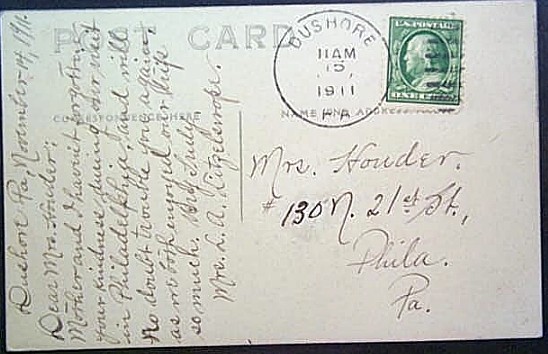 POST CARD
CORRESPONDENCE HERE
NAME AND ADDRESS HERE
DUSHORE
11 AM
15
1911
PA
U.S. POSTAGE
Dushore Pa, November 14, 1911.
Dear Mrs. Houder:
Mother and I haven't forgotten
your kindness during our visit
in Philadelphia, and will
no doubt trouble you again,
as we both enjoyed our selfs
so much. Very Truly
Mrs. L. A.
Mrs. Houder.
# 130 N. 21st St.,
Phila.
Pa.